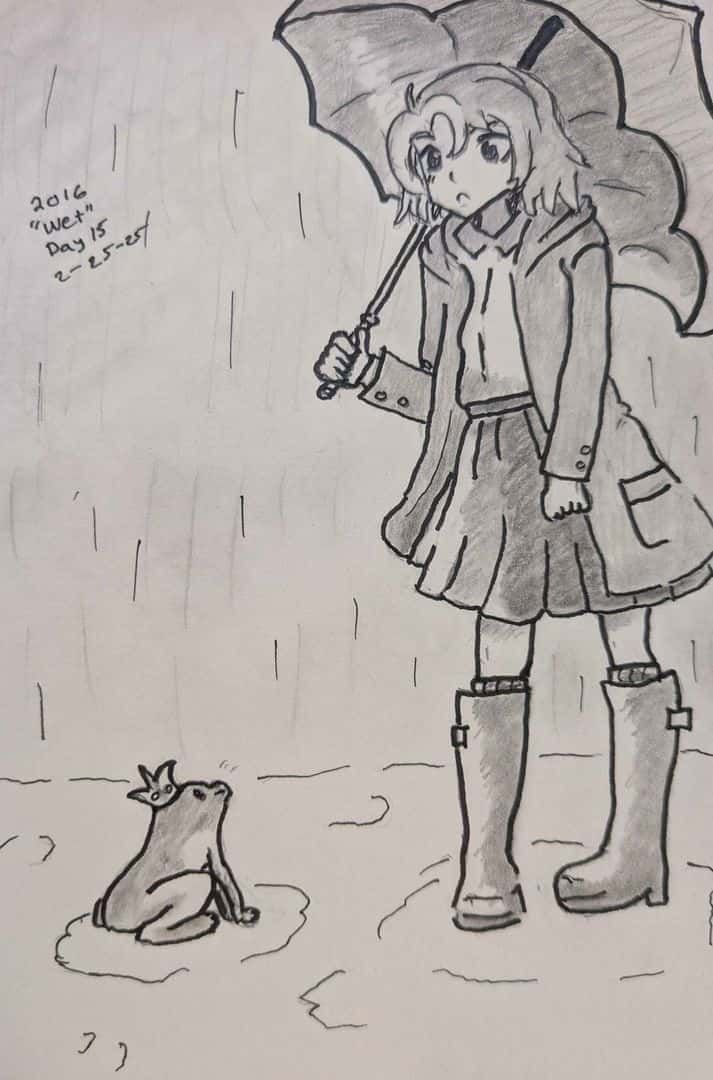 2016
"Wet"
Day 15
2-25-25